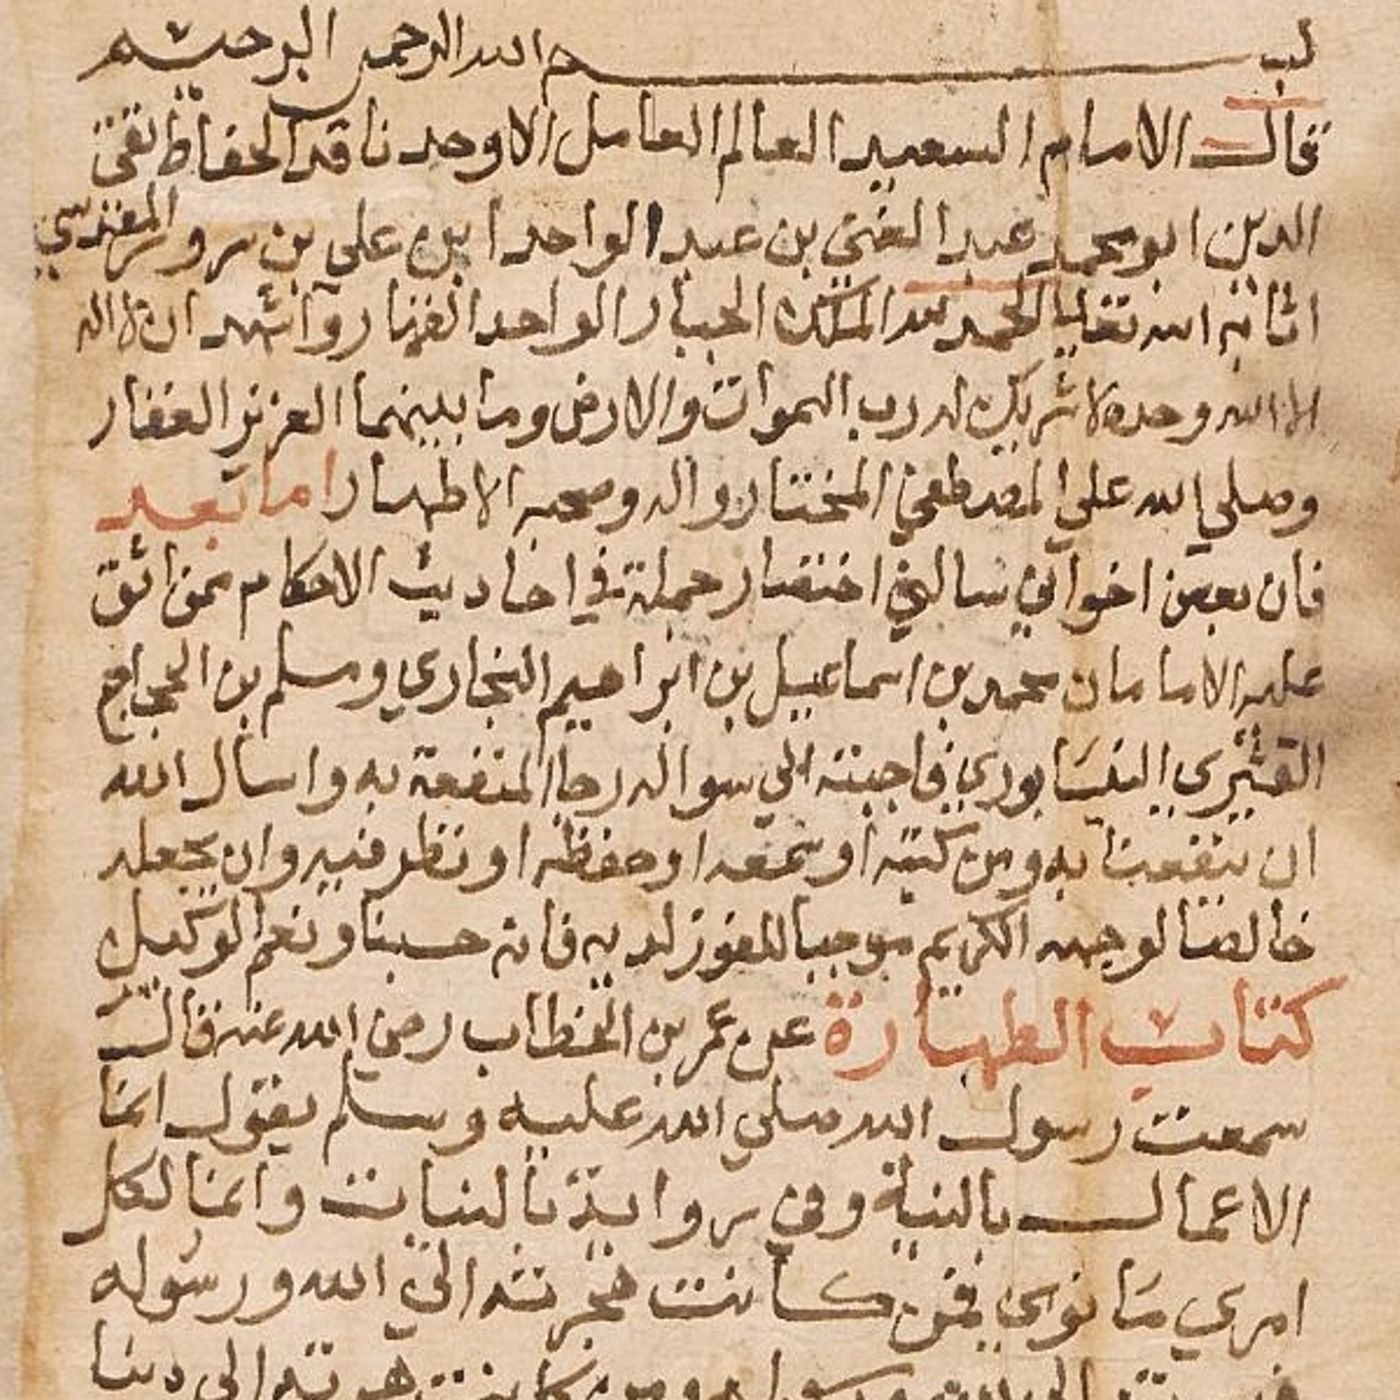 بسم الله الرحمن الرحيم
قال الامام السعيد العالم العامل الاوحد ناقد الحفاظ تقي
الدين ابو محمد عبد الغني بن عبد الواحد ابن علي بن سرور المقدسي
اثابه الله تعالي الحمد لله الملك الجبار الواحد القهار واشهد ان لا اله
الا الله وحده لا شريك له رب السموات والارض وما بينهما العزيز الغفار
وصلي الله علي المصطفي المختار واله وصحبه الاطهار اما بعد
فان بعض اخواني سالني اختصار جملة في احاديث الاحكام مما اتفق
عليه الامامان محمد بن اسماعيل بن ابراهيم البخاري ومسلم بن الحجاج
القشيري النيسابوري فاجبته الي سواله رجا المنفعة به واسال الله
ان ينفعنا به ومن كتبه او سمعه او حفظه او نظر فيه وان يجعله
خالصا لوجهه الكريم موجبا للفوز لديه فانه حسبنا ونعم الوكيل
كتاب الطهارة عن عمر بن الخطاب رضي الله عنه قال
سمعت رسول الله صلي الله عليه وسلم يقول انما
الاعمال بالنية وفي رواية بالنيات وانما لكل
امري ما نوي فمن كانت هجرته الي الله ورسوله
فهجرته الي الله ورسوله ومن كانت هجرته الي دنيا